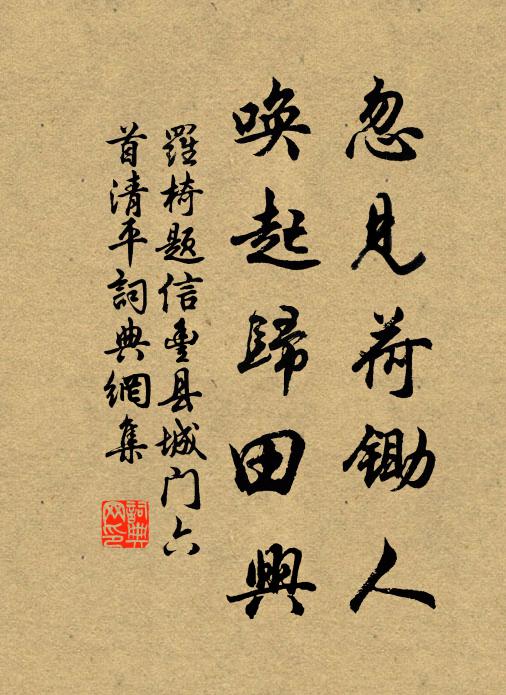 忽見荷鋤人
喚起歸田興
羅椅题信豊县城门六
首清平詞典網集
詞典网印